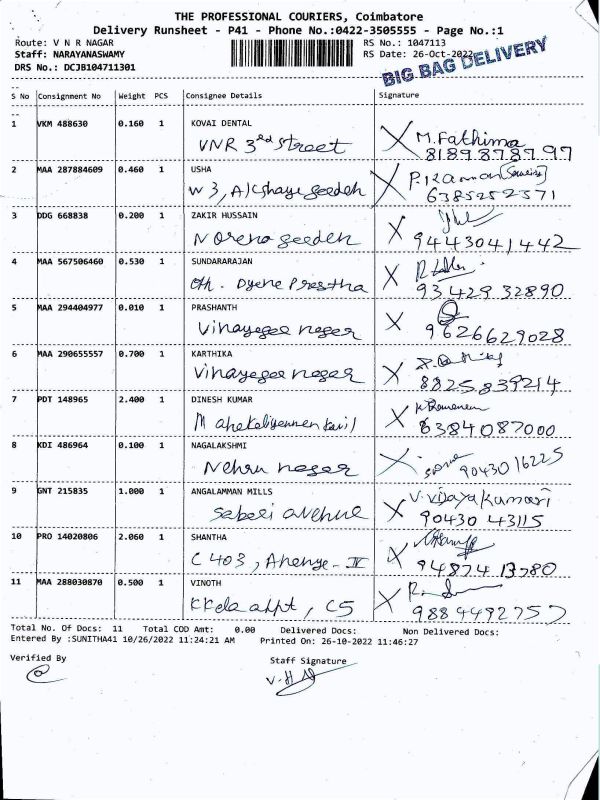 THE PROFESSIONAL COURIERS, Coimbatore
Delivery Runsheet - P41 - Phone No.:0422-3505555 - Page No.:1
Route: V N R NAGAR RS No.: 1047113
Staff: NARAYANASWAMY RS Date: 26-Oct-2022
DRS No.: DCJB104711301 BIG BAG DELIVERY
S No Consignment No Weight PCS Consignee Details Signature
1 VKM 488630 0.160 1 KOVAI DENTAL
VNR 3rd Street X M. Fathima
8189878797
2 MAA 287884609 0.460 1 USHA
W 3, X P.
6385252571
3 DDG 668838 0.200 1 ZAKIR HUSSAIN
X 9443041442
4 MAA 567506460 0.530 1 SUNDARARAJAN
X 93429 32890
5 MAA 294404977 0.010 1 PRASHANTH
Vinayegee neger X 9626629028
6 MAA 290655557 0.700 1 KARTHIKA
Vinayegee neger X 8825839214
7 PDT 148965 2.400 1 DINESH KUMAR
X 6384087000
8 KDI 486964 0.100 1 NAGALAKSHMI
Nehru neger X 9043016225
9 GNT 215835 1.000 1 ANGALAMMAN MILLS
avenue X V. Vijaya Kumari
90430 43115
10 PRO 14020806 2.060 1 SHANTHA
C 403, X 94874 13780
11 MAA 288030870 0.500 1 VINOTH
, C5 X 9884492757
Total No. Of Docs: 11 Total COD Amt: 0.00 Delivered Docs: Non Delivered Docs:
Entered By :SUNITHA41 10/26/2022 11:24:21 AM Printed On: 26-10-2022 11:46:27
Verified By Staff Signature